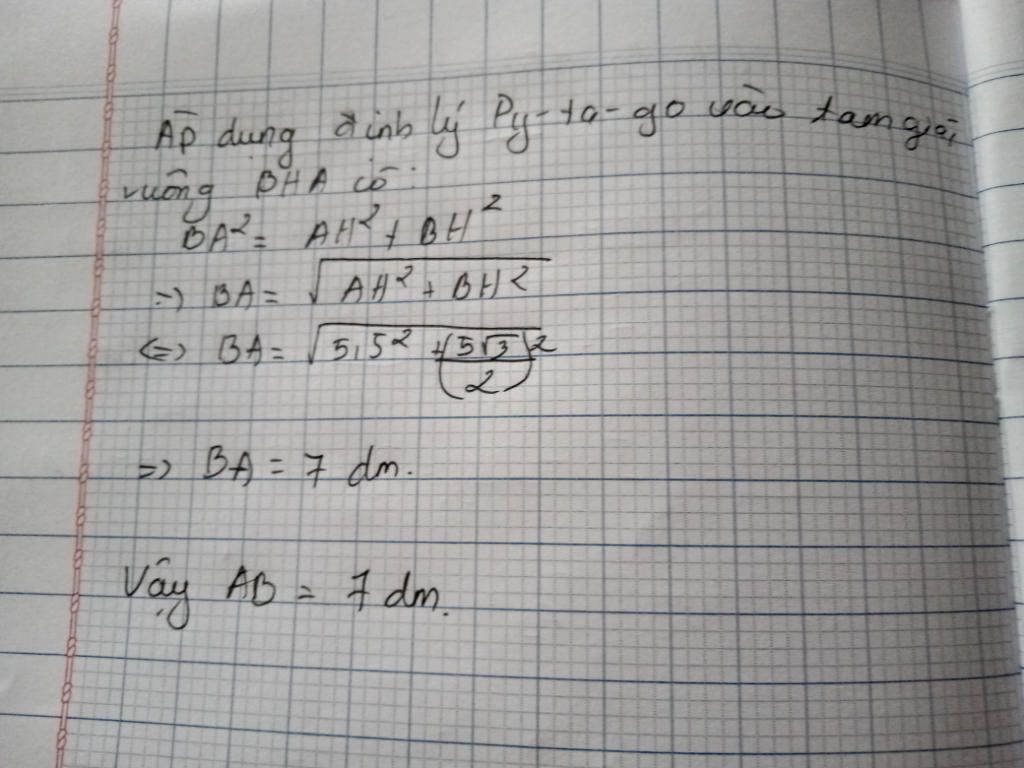 Áp dụng định lý Py-ta-go vào tam giác
vuông BHA có:
BA² = AH² + BH²
=> BA = √(AH² + BH²)
<=> BA = √(5,5² + (5√3/2)²)
=> BA = 7 dm.
Vậy AB = 7 dm.